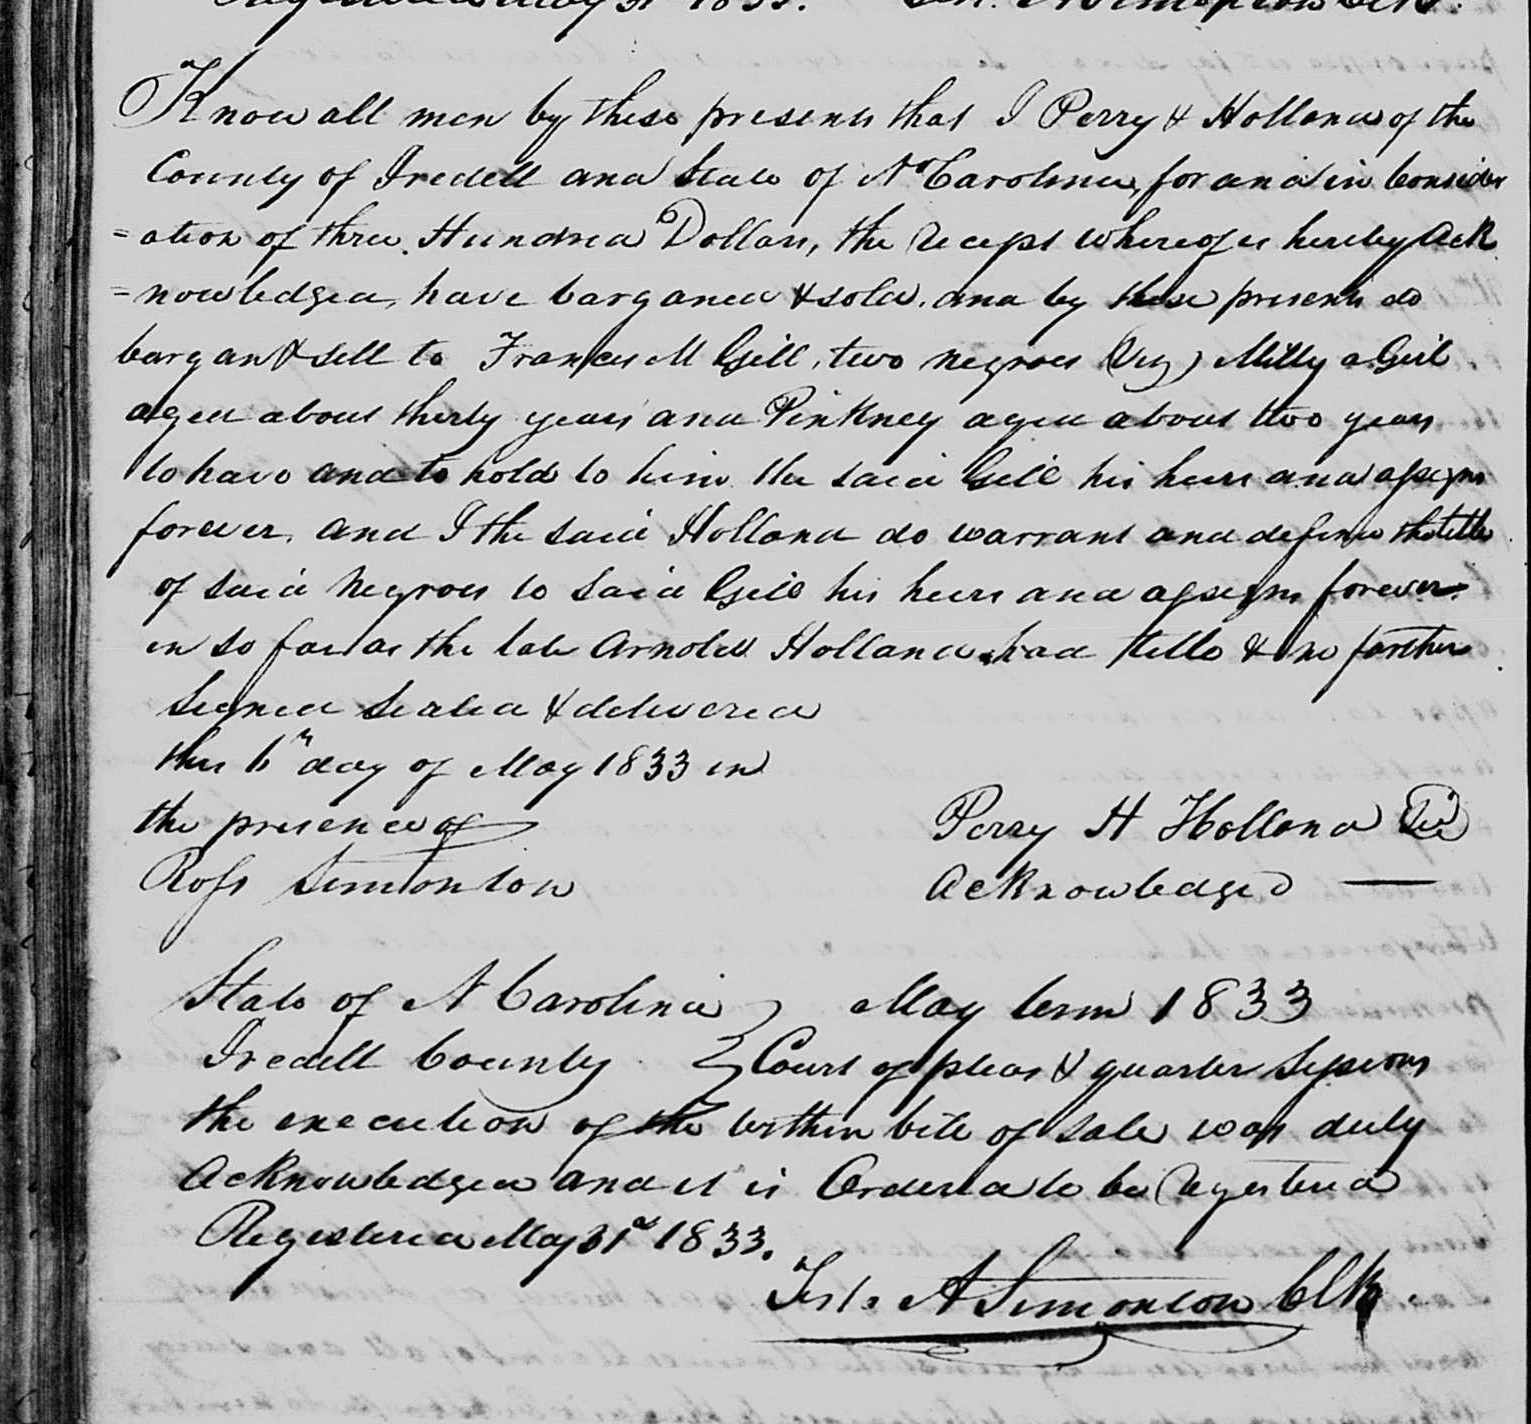 Registered May 31 1833. Test. A Simonton Clk.
Know all men by these presents that I Perry H Holland of the
County of Iredell and State of No Carolina, for and in Consider
=ation of three Hundred Dollars, the Receipt whereof is hereby Ack
=nowledged, have barganed & sold, and by these presents do
bargan & sell to Frances M Gill, two negroes (Viz) Milly a Girl
aged about thirty years and Pinkney aged about two years
to have and to hold to him the said Gill his heirs and assigns
forever. and I the said Holland do warrant and defend the title
of said Negroes to said Gill his heirs and assigns forever
in so far as the late Arnold Holland had title & no farther
Signed Sealed & delivered
this 6th day of May 1833 in
the presence of
Perry H Holland Seal
Ross Simonton
Acknowledged
State of N Carolina } May term 1833
Iredell County } Court of pleas & quarter Sessions
the execution of the within bill of sale was duly
Acknowledged and it is Ordered to be Registered
Registered May 31st 1833.
Test. A Simonton Clk.